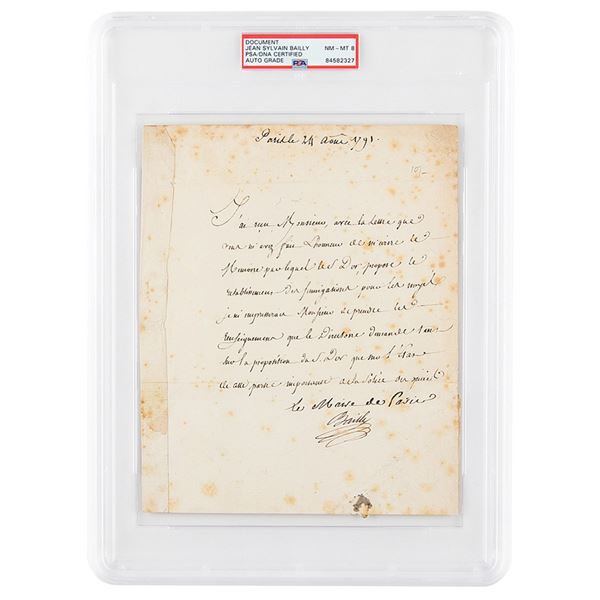 DOCUMENT
JEAN SYLVAIN BAILLY
PSA/DNA CERTIFIED
AUTO GRADE
NM - MT 8
PSA
84582327
Paris le 24 Aout 1791.
J'ai reçu Monsieur, avec la lettre que
vous m'avez fait l'honneur de m'écrire le
Memoire par lequel le S. D'or, propose le
retablissement des fumigations pour les noyés
je m'empresserai Monsieur de prendre les
renseignemens que le Directoire demande tant
sur la proposition du S. D'or que sur l'
cette partie importante de la Police
Le Maire de Paris
Bailly